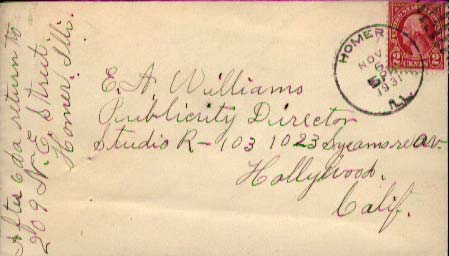 After 6 da return to
209 N.E. Street
Homer, Ill.
HOMER
NOV
6
5 PM
1931
ILL.
2 CENTS 2
E. A. Williams
Publicity Director
Studio R-103 1023 Sycamore av.
Hollywood.
Calif.